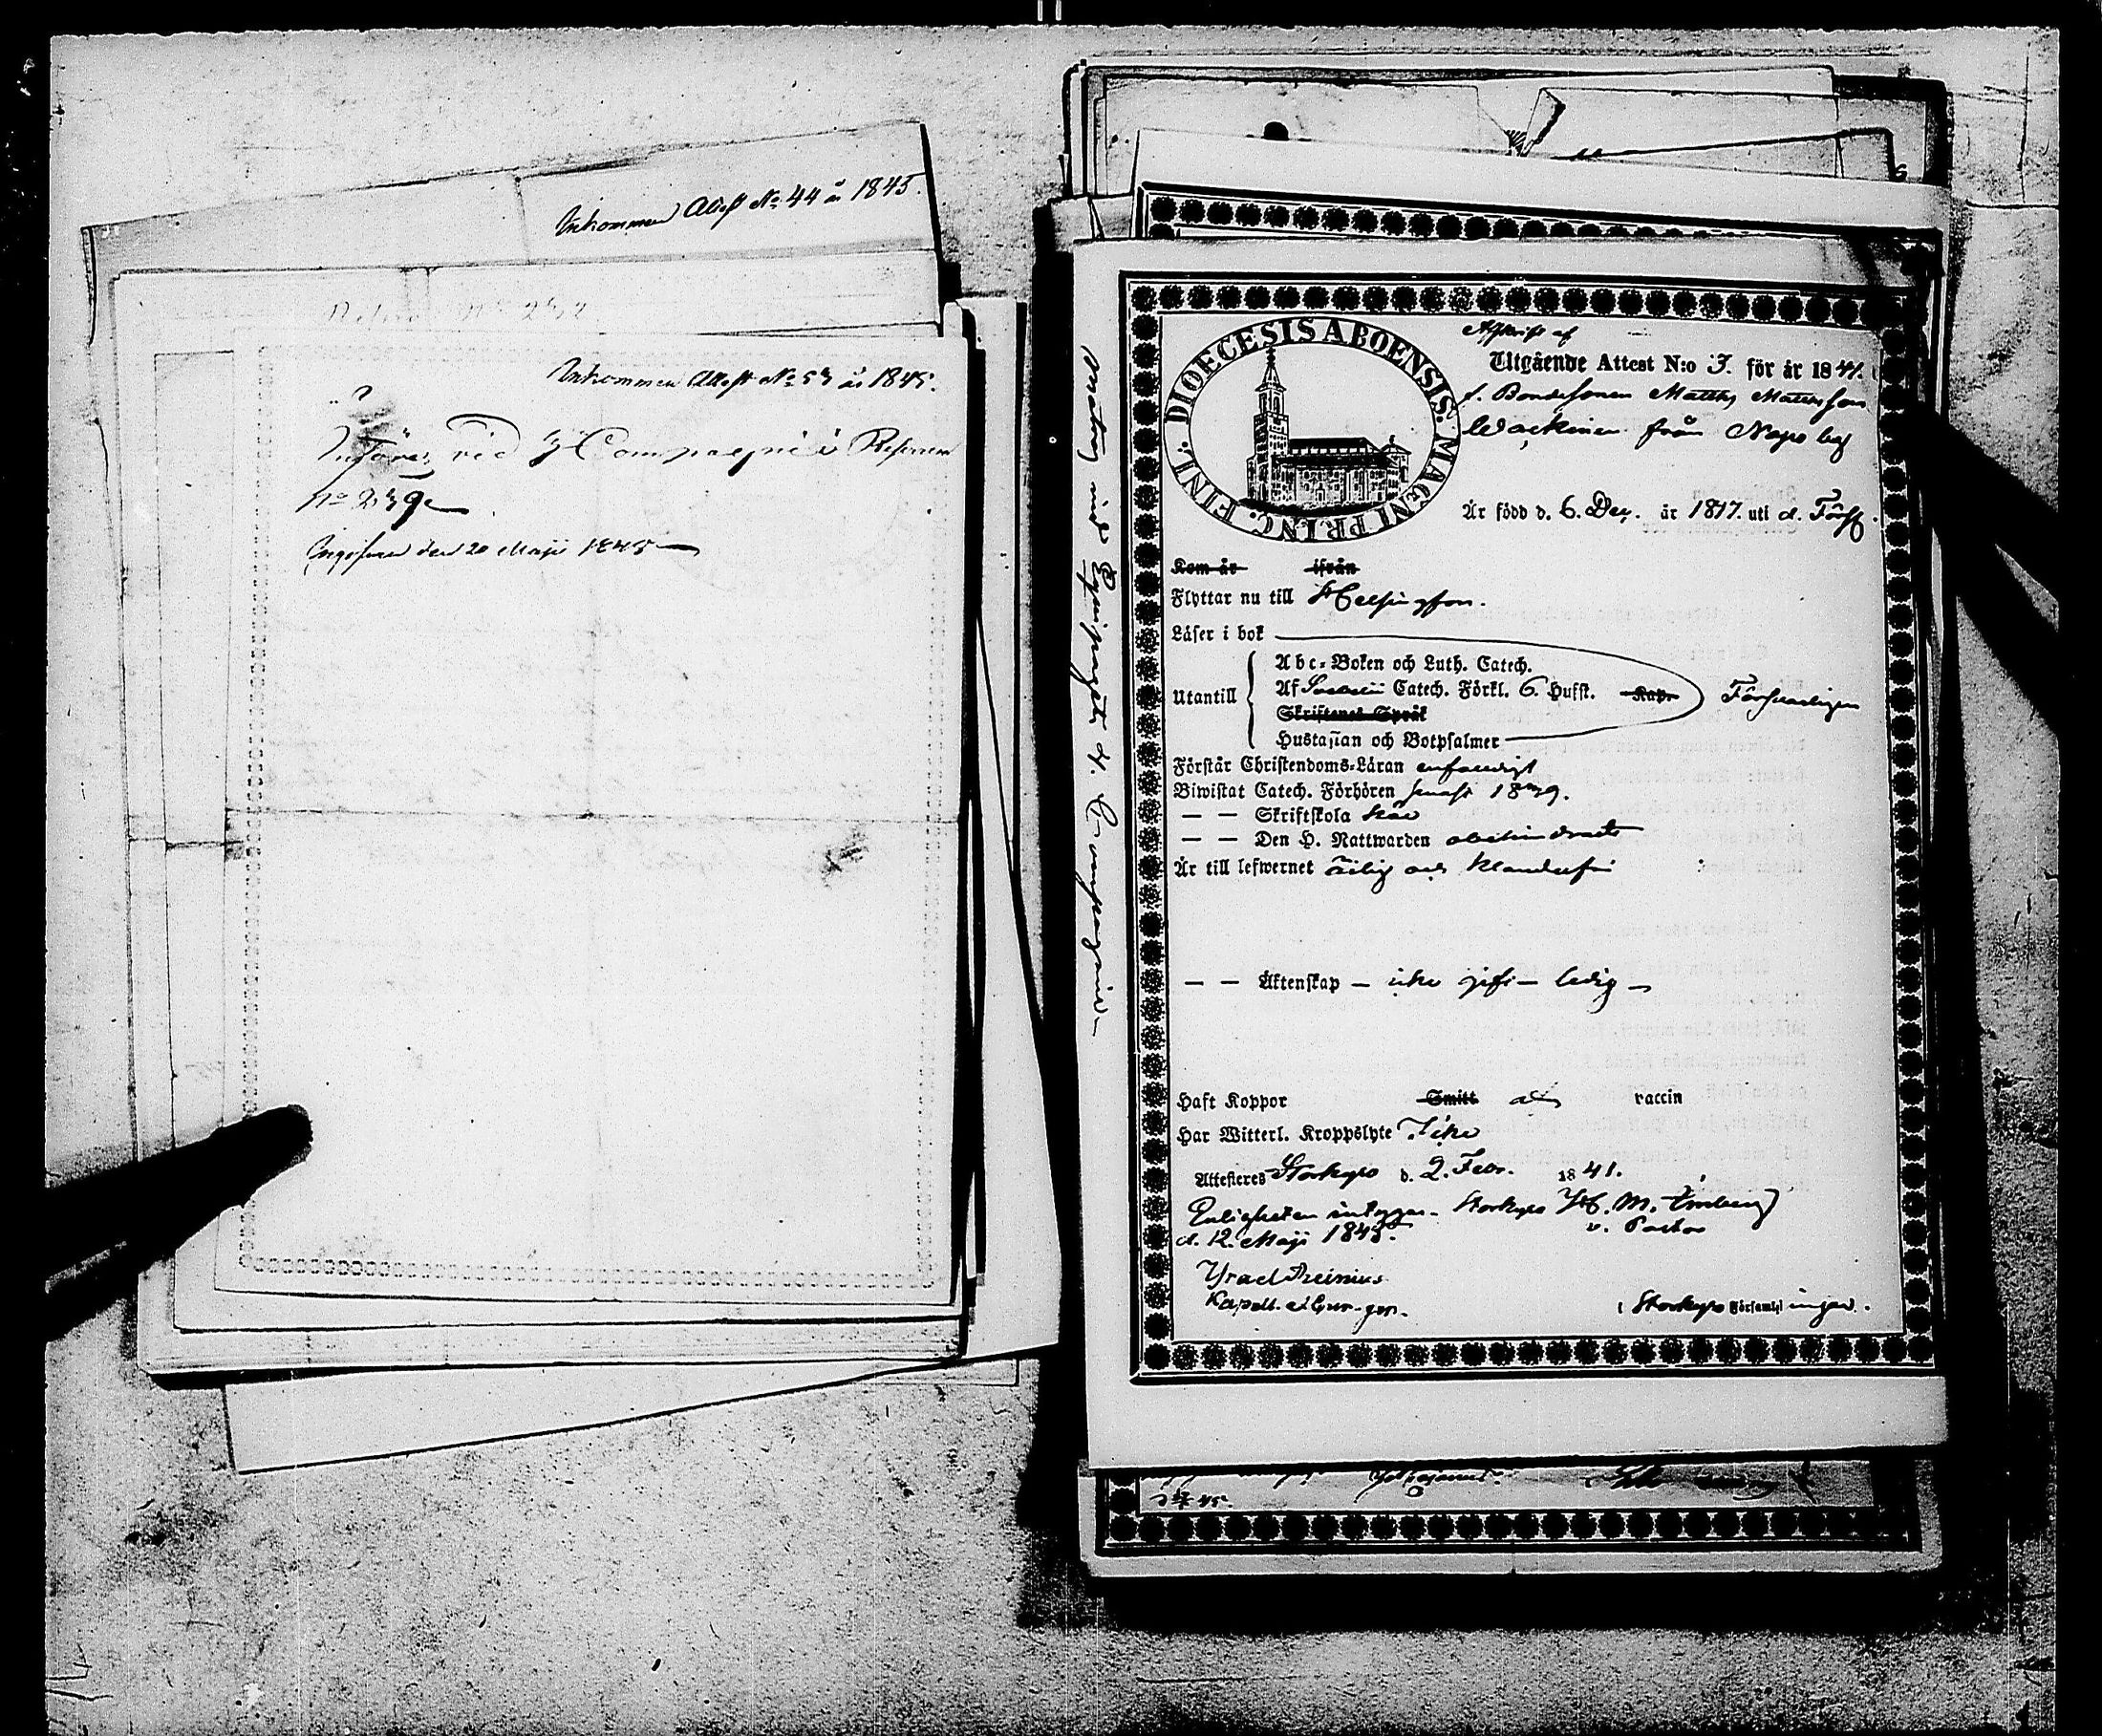 Inkommen Attest No 44 år 1845.
Inkommen Attest No 53 år 1845.
Införes vid 3 Compagnie Reserven
No 239
Ingifven den 20 Maji 1845
vid Equipaget 4. Compagniet
DIOECESIS ABOENSIS. MAGNI PRINC. FINL.
Afskrift af
Utgående Attest N:o 3. för år 1841.
f. Bondesonen Matths Mattsson
Wäckinen från Napo by
Är född d. 6. Dec. år 1817. uti d. Förs.
Kom år ifrån
Flyttar nu till Helsingfors.
Läser i bok
Utantill
Abc-Boken och Luth. Catech.
Af Svebelii Catech. Förkl. 6. Hufst. Kap.
Skriftenes Språk
Hustaflan och Botpsalmer
Försvarligen
Förstår Christendoms-Läran enfaldigt
Biwistat Catech. Förhören senast 1839.
— — Skriftskola
— — Den H. Nattwarden obehindrad
Är till lefwernet ärlig och klanderfri
— — Äktenskap — icke gift — ledig —
Haft Koppor Smitt vaccin
Har Witterl. Kroppslyte Icke
Attesteres Storkyro d. 2. Febr. 1841.
Enligheten intygar. Storkyro H. M.
v. Pastor
d. 12. Maji 1845.
Israel Reinius
Kapell.
i Storkyro Församlingar.